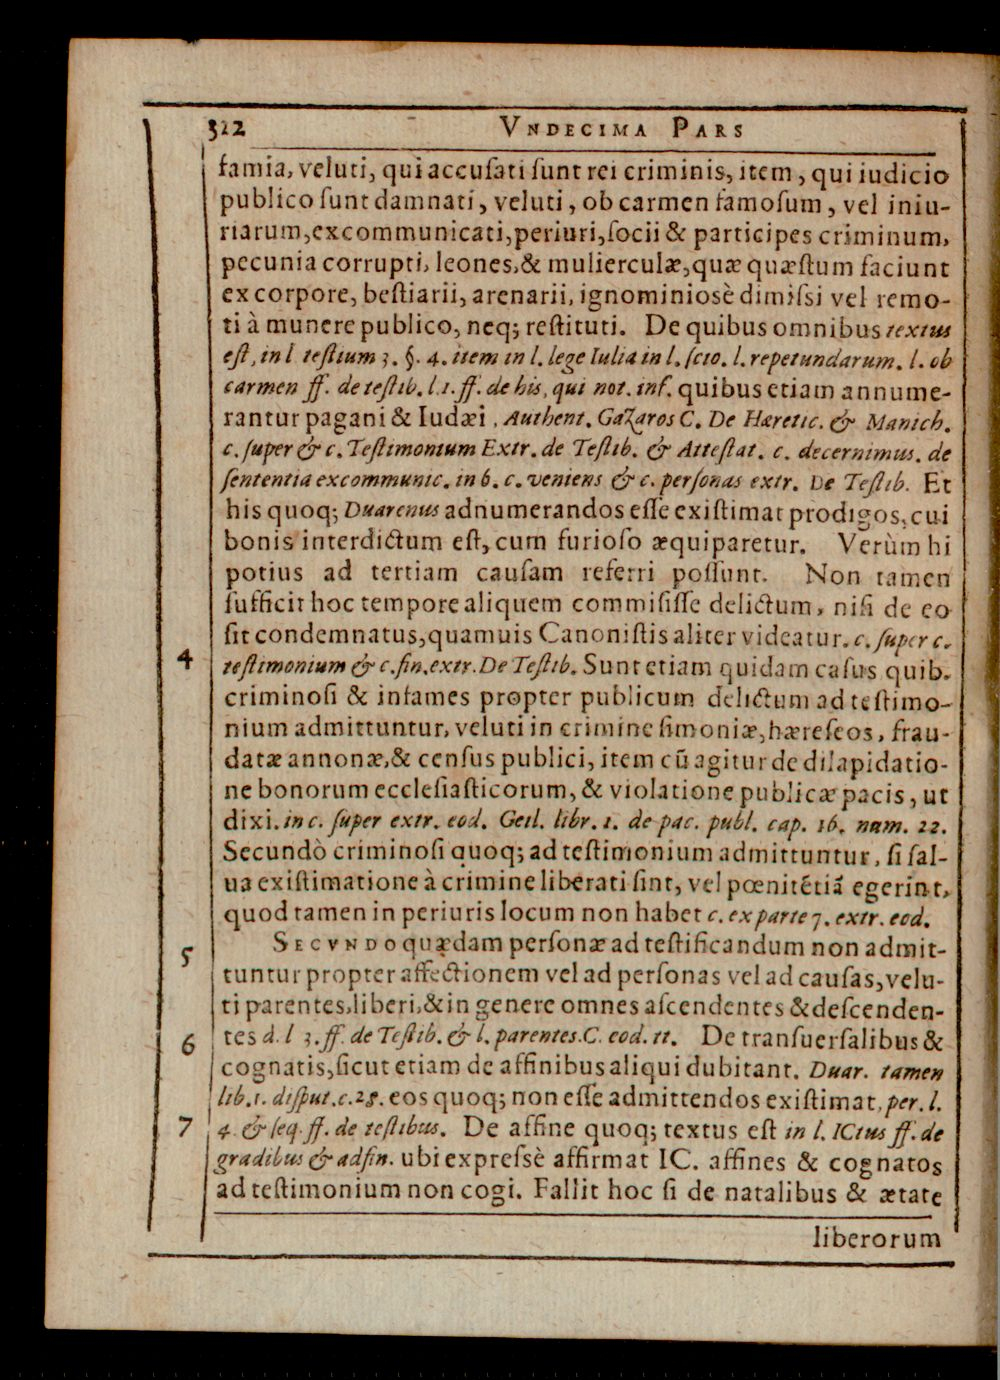 322 VNDECIMA PARS
famia, veluti, qui accuſati ſunt rei criminis, item, qui iudicio
publico ſunt damnati, veluti, ob carmen famoſum, vel iniu-
riarum, excommunicati, periuri, ſocii & participes criminum,
pecunia corrupti, leones, & mulierculæ, quæ quæſtum faciunt
ex corpore, beſtiarii, arenarii, ignominiosè dimiſsi vel remo-
ti à munere publico, neq; reſtituti. De quibus omnibus textus
eſt, in l teſtium 3. §. 4. item in l. lege Iulia in l. ſcio. l. repetundarum. l. ob
carmen ff. de teſtib. l. 1. ff. de his, qui not. inf. quibus etiam annume-
rantur pagani & Iudæi, Authent. Gazaros C. De Hæretic. & Manich.
c. ſuper & c. Teſtimonium Extr. de Teſtib. & Atteſtat. c. decernimus. de
ſententia excommunic. in 6. c. veniens & c. perſonas extr. De Teſtib. Et
his quoq; Duarenus adnumerandos eſſe exiſtimat prodigos, cui
bonis interdictum eſt, cum furioſo æquiparetur. Verùm hi
potius ad tertiam cauſam referri poſſunt. Non tamen
ſufficit hoc tempore aliquem commiſiſſe delictum, niſi de eo
ſit condemnatus, quamuis Canoniſtis aliter videatur. c. ſuper c.
4 teſtimonium & c. fin. extr. De Teſtib. Sunt etiam quidam caſus quib.
criminoſi & infames propter publicum delictum ad teſtimo-
nium admittuntur, veluti in crimine ſimoniæ, hæreſeos, frau-
datæ annonæ, & cenſus publici, item cū agitur de dilapidatio-
ne bonorum eccleſiaſticorum, & violatione publicæ pacis, ut
dixi. in c. ſuper extr. eod. Geil. libr. 1. de pac. publ. cap. 16. num. 22.
Secundò criminoſi quoq; ad teſtimonium admittuntur, ſi ſal-
ua exiſtimatione à crimine liberati ſint, vel pœnitētiā egerint,
quod tamen in periuris locum non habet c. ex parte 7. extr. eod.
5 SECVNDO quædam perſonæ ad teſtificandum non admit-
tuntur propter affectionem vel ad perſonas vel ad cauſas, velu-
ti parentes, liberi, & in genere omnes aſcendentes & deſcenden-
6 tes d. l 3. ff. de Teſtib. & l. parentes. C. eod. tt. De tranſuerſalibus &
cognatis, ſicut etiam de affinibus aliqui dubitant. Duar. tamen
lib. 1. diſput. c. 28. eos quoq; non eſſe admittendos exiſtimat, per. l.
7 4. & ſeq. ff. de teſtibus. De affine quoq; textus eſt in l. ICtus ff. de
gradibus & adfin. ubi expreſsè affirmat IC. affines & cognatos
ad teſtimonium non cogi. Fallit hoc ſi de natalibus & ætate
liberorum